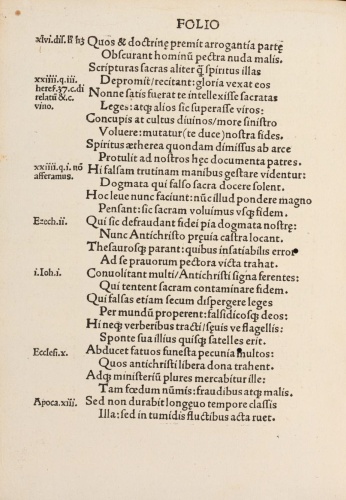 FOLIO
xlvi.dis. Quos & doctrinę premit arrogantia partę
Obscurant hominū pectra nuda malis.
Scripturas sacras aliter ꝗ̃ spiritus illas
xxiiii.q.iii. Depromit/recitant: gloria vexat eos
heres.37.c.di Non ne satis fuerat te intellexisse sacratas
relatū &.c. Leges: atqꝫ alios sic superasse viros:
vino. Concupis at cultus diuinos/more sinistro
Voluere: mutatur(te duce)nostra fides.
Spiritus ætherea quondam dimissus ab arce
Protulit ad nostros hęc documenta patres.
xxiiii.q.i. nō Hi falsam trutinam manibus gestare videntur:
afferamus. Dogmata qui falso sacra docere solent.
Hoc leue nunc faciunt: nūc illud pondere magno
Pensant: sic sacram voluimus vsqꝫ fidem.
Ezech.ii. Qui sic defraudant fidei pia dogmata nostrę:
Nunc Antichristo pręuia castra locant.
Thesaurosqꝫ parant: quibus insatiabilis error
Ad se prauorum pectora victa trahat.
i.Ioh.i. Conuolitant multi/Antichristi signa ferentes:
Qui tentent sacram contaminare fidem.
Qui falsas etiam secum dispergere leges
Per mundū properent: falsidicosqꝫ deos:
Hi neqꝫ verberibus tracti/sęuis ve flagellis:
Sponte sua illius quisqꝫ satelles erit.
Ecclesi.x. Abducet fatuos funesta pecunia multos:
Quos antichristi libera dona trahent.
Adqꝫ ministeriū plures mercabitur ille:
Tam fœdum nūmis: fraudibus atqꝫ malis.
Apoca.xiii. Sed non durabit longęuo tempore classis
Illa: sed in tumidis fluctibus acta ruet.